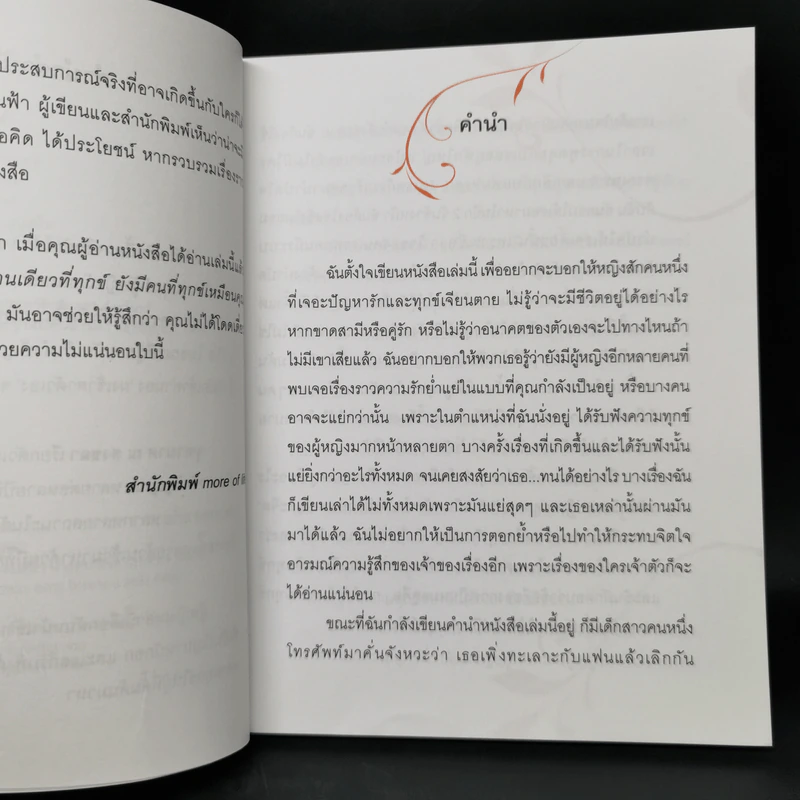 ประสบการณ์จริงที่อาจเกิดขึ้นกับใครก็ได้
นฟ้า ผู้เขียนและสำนักพิมพ์เห็นว่าน่าจะ
อคิด ได้ประโยชน์ หากรวบรวมเรื่องราว
งสือ
ก เมื่อคุณผู้อ่านหนังสือได้อ่านเล่มนี้
านเดียวที่ทุกข์ ยังมีคนที่ทุกข์เหมือนคุณ
มันอาจช่วยให้รู้สึกว่า คุณไม่ได้โดดเดี่ยว
วยความไม่แน่นอนใบนี้
สำนักพิมพ์ more of li
คำนำ
ฉันตั้งใจเขียนหนังสือเล่มนี้ เพื่ออยากจะบอกให้หญิงสักคนหนึ่ง
ที่เจอะปัญหารักและทุกข์เจียนตาย ไม่รู้ว่าจะมีชีวิตอยู่ได้อย่างไร
หากขาดสามีหรือคู่รัก หรือไม่รู้ว่าอนาคตของตัวเองจะไปทางไหนถ้า
ไม่มีเขาเสียแล้ว ฉันอยากบอกให้พวกเธอรู้ว่ายังมีผู้หญิงอีกหลายคนที่
พบเจอเรื่องราวความรักย่ำแย่ในแบบที่คุณกำลังเป็นอยู่ หรือบางคน
อาจจะแย่กว่านั้น เพราะในตำแหน่งที่ฉันนั่งอยู่ ได้รับฟังความทุกข์
ของผู้หญิงมากหน้าหลายตา บางครั้งเรื่องที่เกิดขึ้นและได้รับฟังนั้น
แย่ยิ่งกว่าอะไรทั้งหมด จนเคยสงสัยว่าเธอ...ทนได้อย่างไร บางเรื่องฉัน
ก็เขียนเล่าได้ไม่ทั้งหมดเพราะมันแย่สุดๆ และเธอเหล่านั้นผ่านมัน
มาได้แล้ว ฉันไม่อยากให้เป็นการตอกย้ำหรือไปทำให้กระทบจิตใจ
อารมณ์ความรู้สึกของเจ้าของเรื่องอีก เพราะเรื่องของใครเจ้าตัวก็จะ
ได้อ่านแน่นอน
ขณะที่ฉันกำลังเขียนคำนำหนังสือเล่มนี้อยู่ ก็มีเด็กสาวคนหนึ่ง
โทรศัพท์มาคั่นจังหวะว่า เธอเพิ่งทะเลาะกับแฟนแล้วเลิกกัน